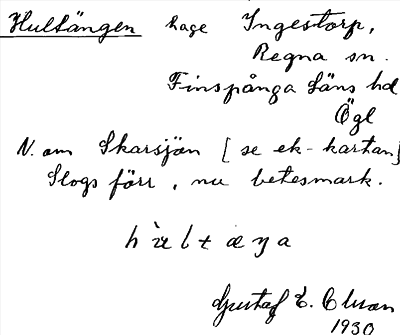 Hultängen hage Ingestorp,
Regna sn.
Finspånga läns hd
Ögl
N. om Skarsjön [se ek-kartan]
Slogs förr, nu betesmark.
Gustaf E. Olsson
1930